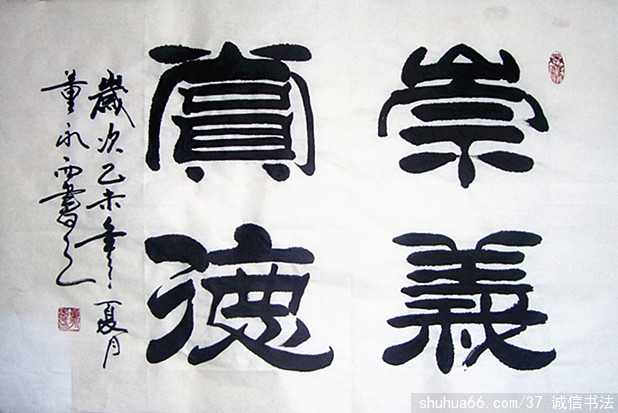 崇義
德
歲次乙未年夏月
董永西書之
shuhua66.com/37 诚信书法